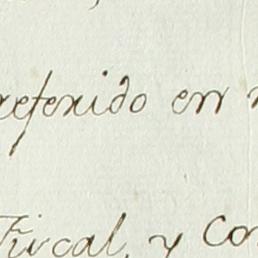 referido en
Fiscal, y Con